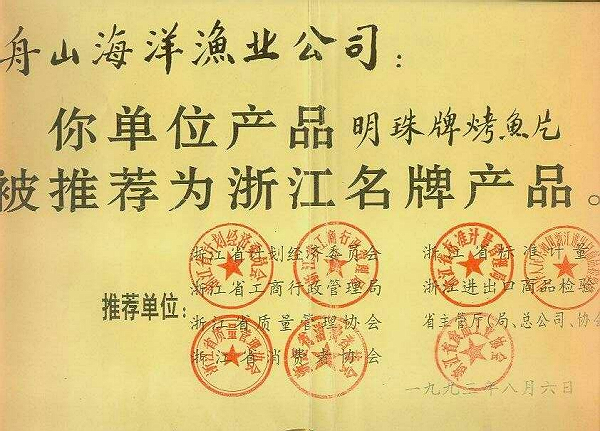 舟山海洋渔业公司：
你单位产品明珠牌烤鱼片
被推荐为浙江名牌产品。
浙江省计划经济委员会 浙江省标准计量
浙江省工商行政管理局 浙江进出口商品检验
推荐单位：
浙江省质量管理协会 省主管厅(局、总公司、协会
浙江省消费者协会
一九九二年八月六日